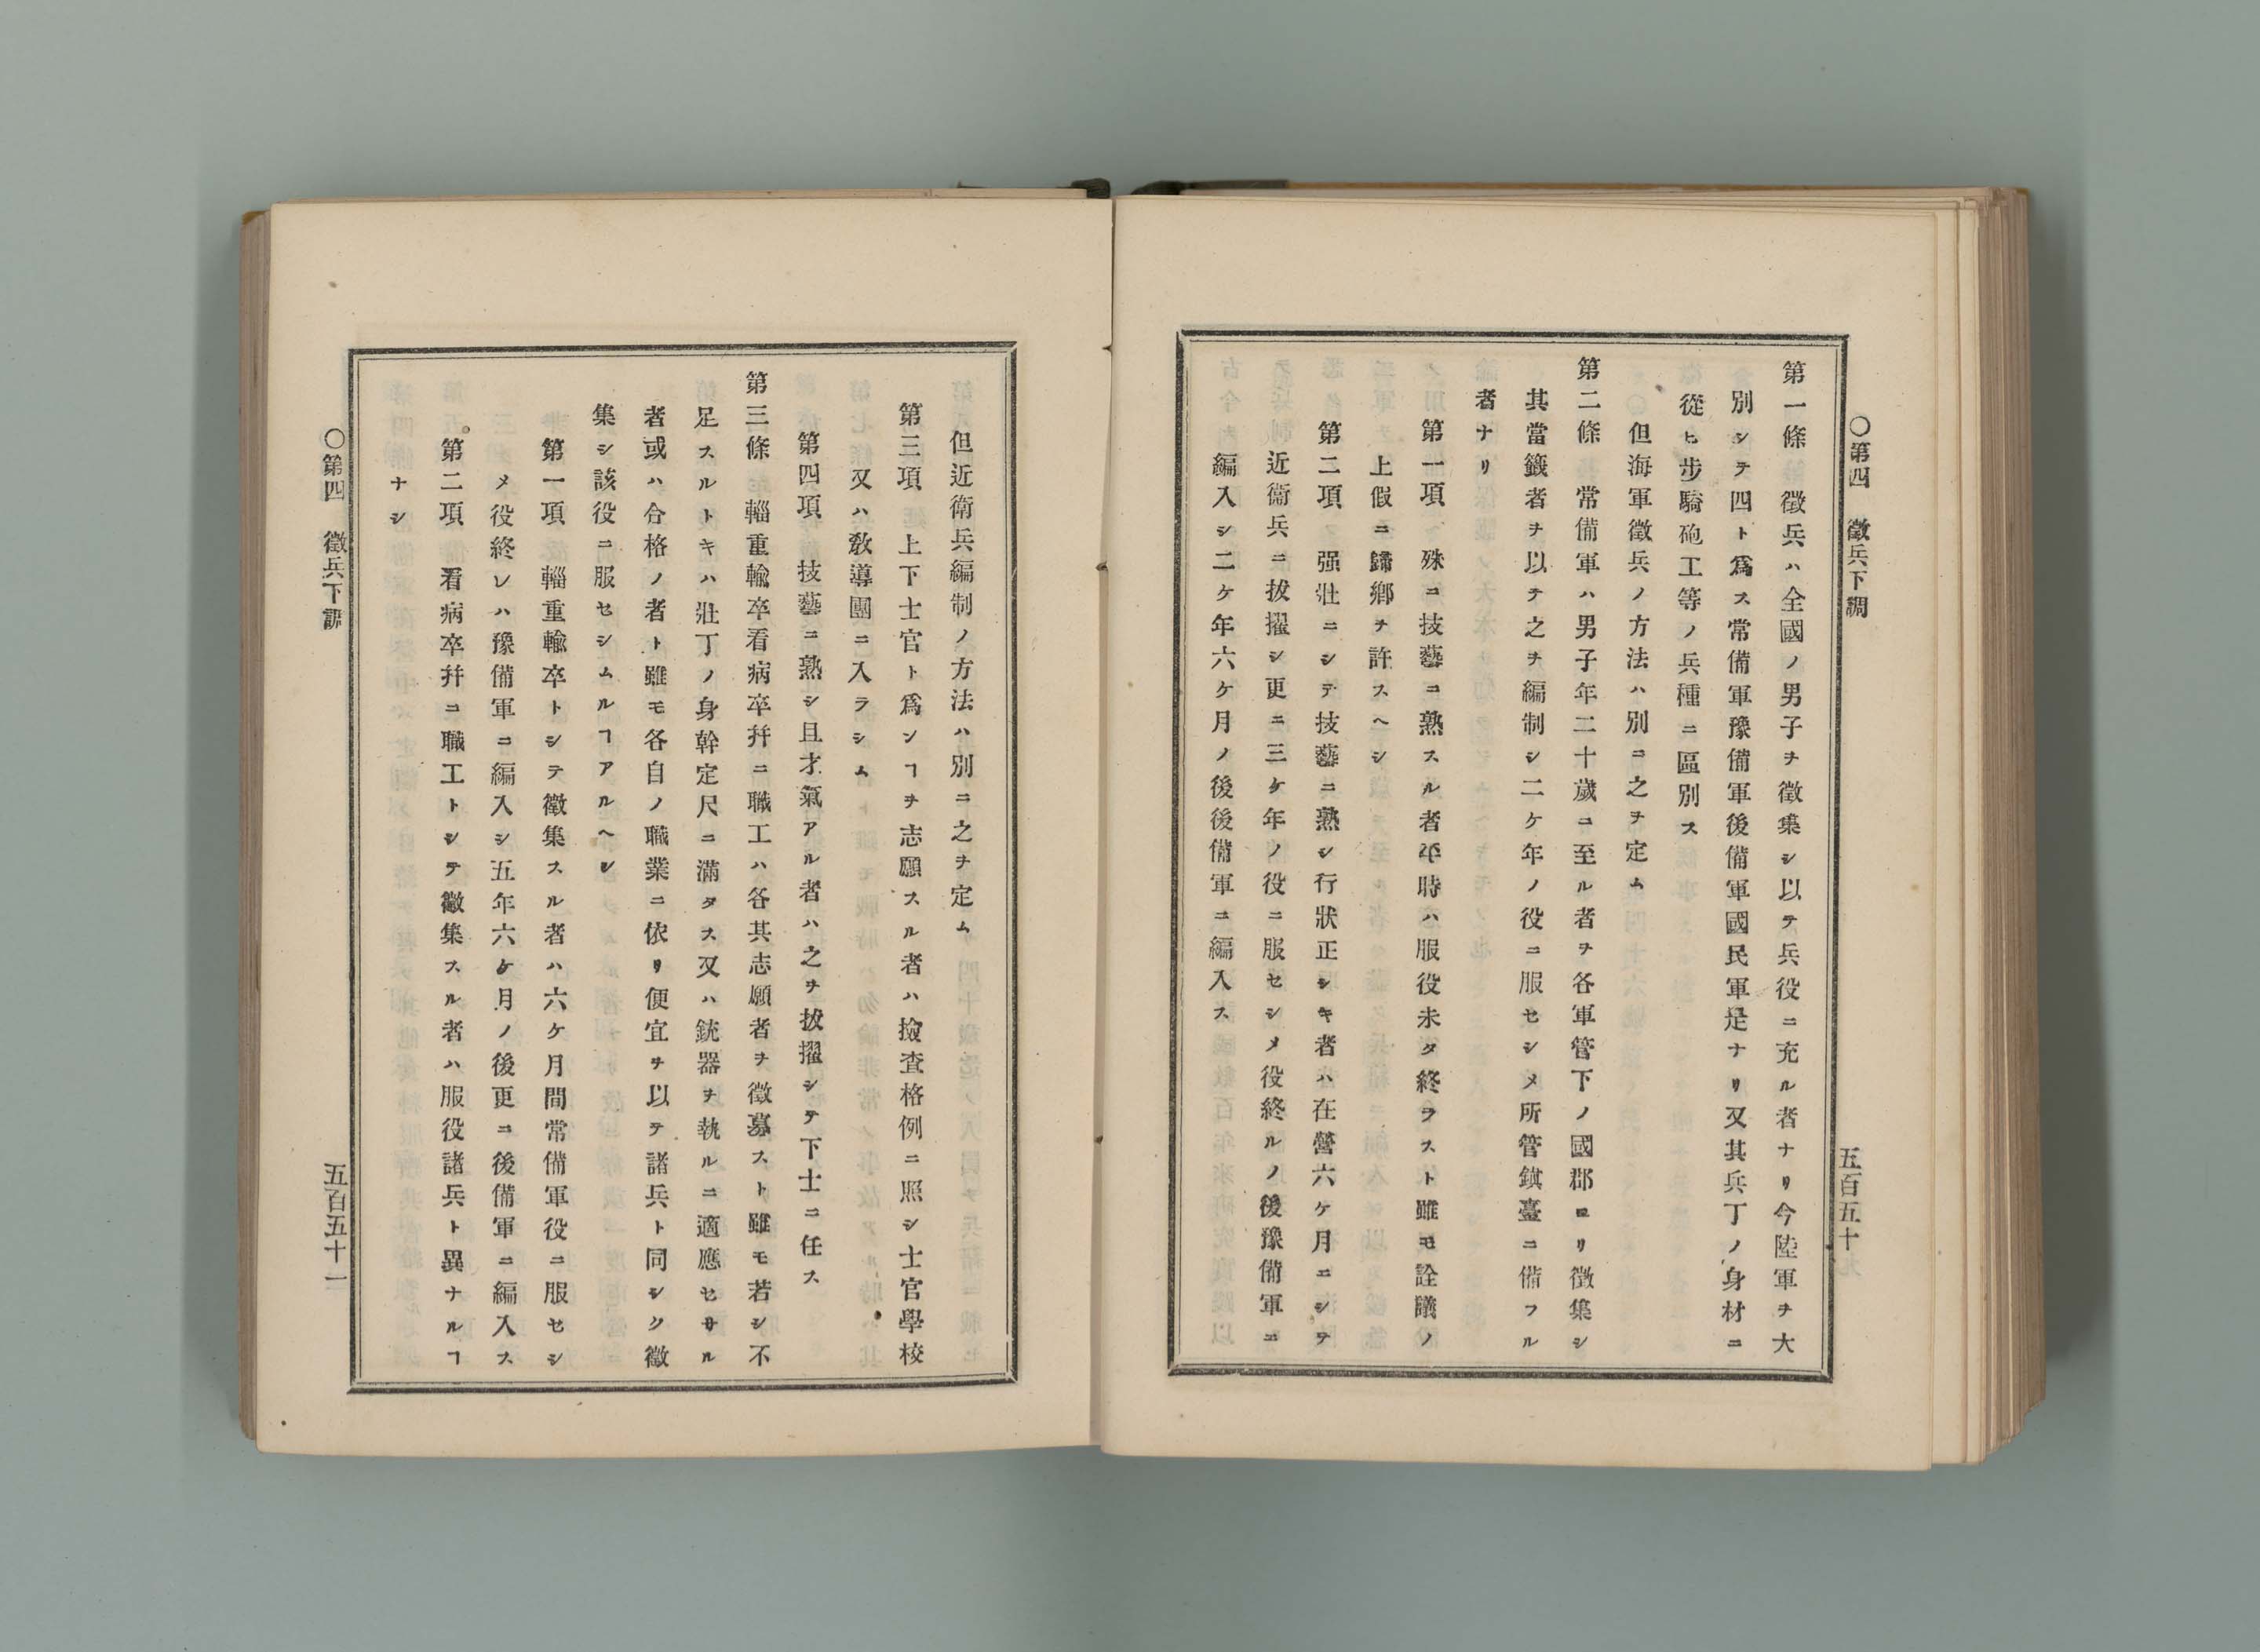 ○第四　徵兵下調　五百五十
第一條　徵兵ハ全國ノ男子ヲ徵集シ以テ兵役ニ充ル者ナリ今陸軍ヲ大
別シテ四ト爲ス常備軍豫備軍後備軍國民軍是ナリ又其兵丁ノ身材ニ
從ヒ步騎砲工等ノ兵種ニ區別ス
但海軍徵兵ノ方法ハ別ニ之ヲ定ム
第二條　常備軍ハ男子年二十歲ニ至ル者ヲ各軍管下ノ國郡ヨリ徵集シ
其當籤者ヲ以テ之ヲ編制シ二ケ年ノ役ニ服セシメ所管鎭臺ニ備フル
者ナリ
第一項　殊ニ技藝ニ熟スル者平時ハ服役未タ終ラスト雖モ詮議ノ
上假ニ歸鄉ヲ許スヘシ
第二項　强壯ニシテ技藝ニ熟シ行狀正シキ者ハ在營六ケ月ニシテ
近衞兵ニ拔擢シ更ニ三ケ年ノ役ニ服セシメ役終ルノ後豫備軍ニ
編入シ二ケ年六ケ月ノ後後備軍ニ編入ス
但近衛兵編制ノ方法ハ別ニ之ヲ定ム
第三項　上下士官ト爲ンヿヲ志願スル者ハ撿査格例ニ照シ士官學校
又ハ敎導團ニ入ラシム
第四項　技藝ニ熟シ且才氣アル者ハ之ヲ拔擢シテ下士ニ任ス
第三條　輜重輸卒看病卒幷ニ職工ハ各其志願者ヲ徵募スト雖モ若シ不
足スルトキハ壯丁ノ身幹定尺ニ滿タス又ハ銃器ヲ執ルニ適應セサル
者或ハ合格ノ者ト雖モ各自ノ職業ニ依リ便宜ヲ以テ諸兵ト同シク徵
集シ該役ニ服セシムルヿアルヘシ
第一項　輜重輸卒トシテ徵集スル者ハ六ケ月間常備軍役ニ服セシ
メ役終レハ豫備軍ニ編入シ五年六ケ月ノ後更ニ後備軍ニ編入ス
第二項　看病卒幷ニ職工トシテ徵集スル者ハ服役諸兵ト異ナルヿ
ナシ
○第四　徵兵下調　五百五十一